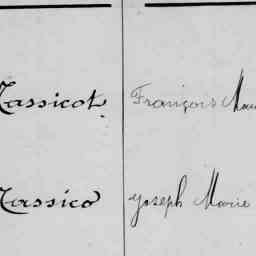 Massicot François Mari
Massico Joseph Marie